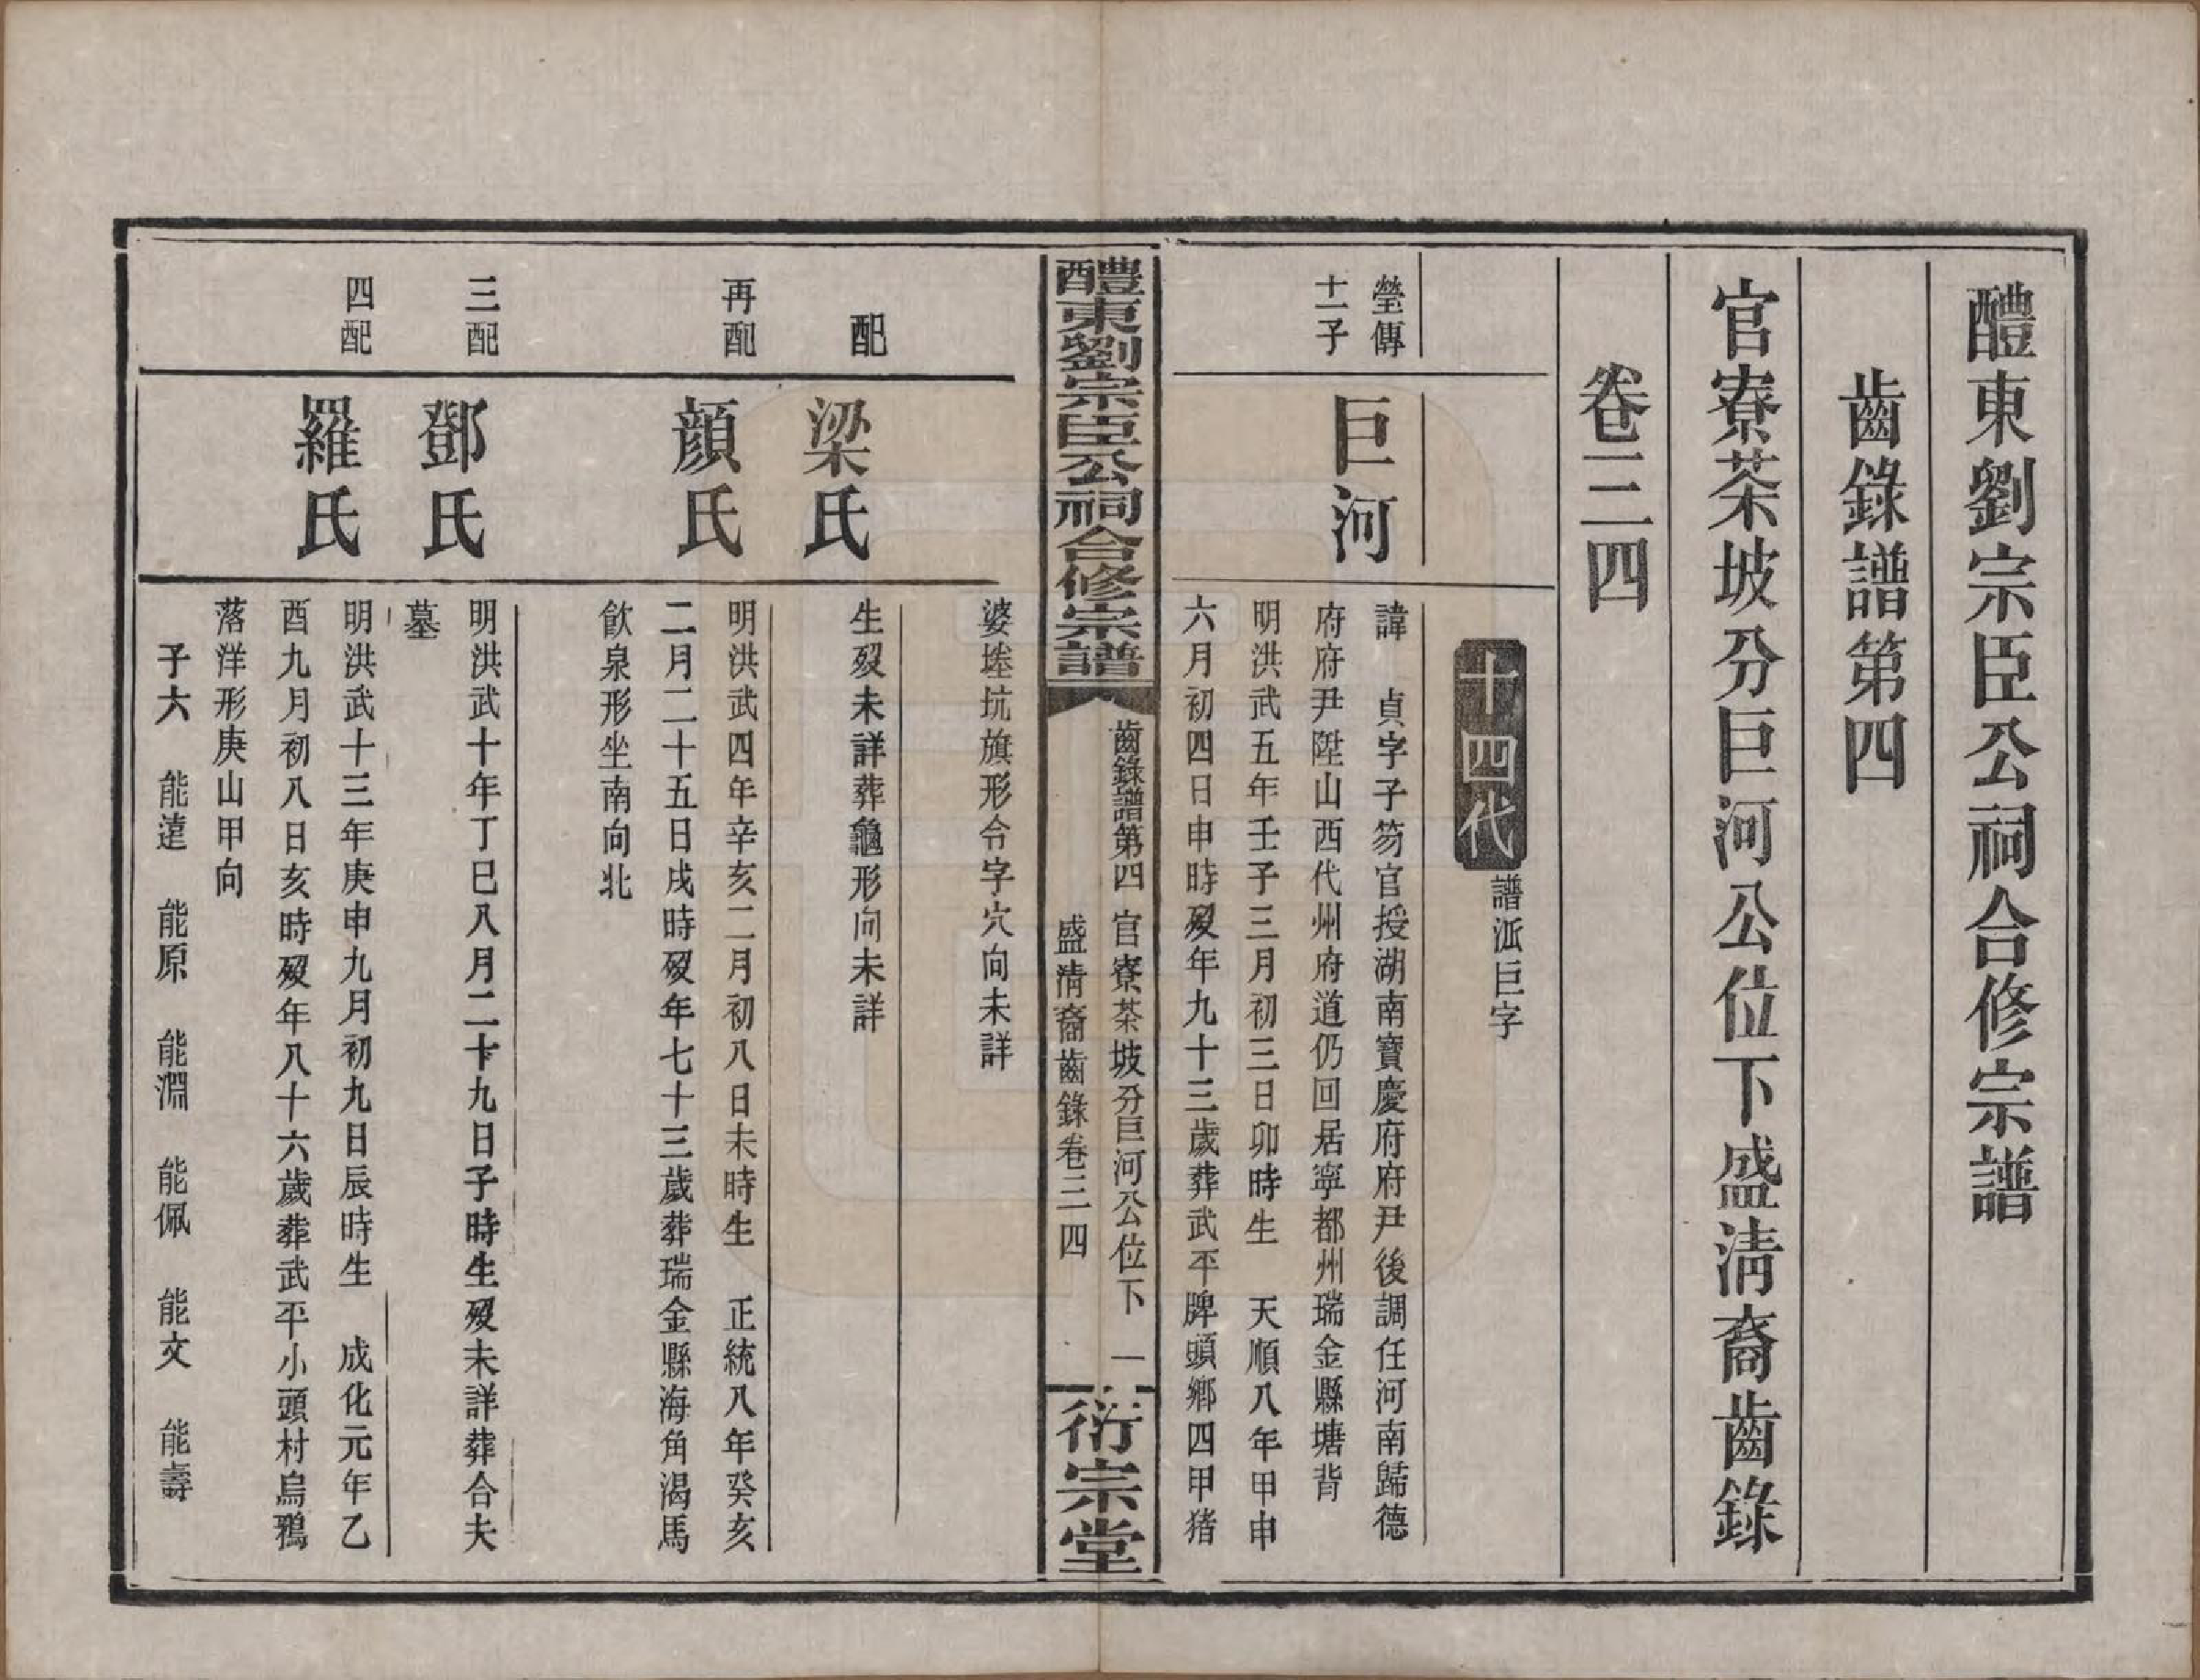 醴東劉宗臣公祠合修宗譜
齒錄譜第四
官寮茶坡分巨河公位下盛淸裔齒錄
卷三四
十四代
譜派巨字
瑩傳
十一子
巨河
諱　貞字子笏官授湖南寶慶府府尹後調任河南歸德
府府尹陞山西代州府道仍回居寧都州瑞金縣塘背
明洪武五年壬子三月初三日卯時生　天順八年甲申
六月初四日申時歿年九十三歲葬武平脾頭鄉四甲猪
醴東劉宗臣公祠合修宗譜
齒錄譜第四　官寮茶坡分巨河公位下　一
盛淸裔齒錄卷三四
衍宗堂
婆墶坑旗形令字穴向未詳
配
梁氏
生歿未詳葬龜形向未詳
再配
顏氏
明洪武四年辛亥二月初八日未時生　正統八年癸亥
二月二十五日戌時歿年七十三歲葬瑞金縣海角渴馬
飮泉形坐南向北
三配
鄧氏
明洪武十年丁巳八月二十九日子時生歿未詳葬合夫
墓
四配
羅氏
明洪武十三年庚申九月初九日辰時生　成化元年乙
酉九月初八日亥時歿年八十六歲葬武平小頭村烏鴉
落洋形庚山甲向
子六　能遠　能原　能淵　能佩　能文　能壽